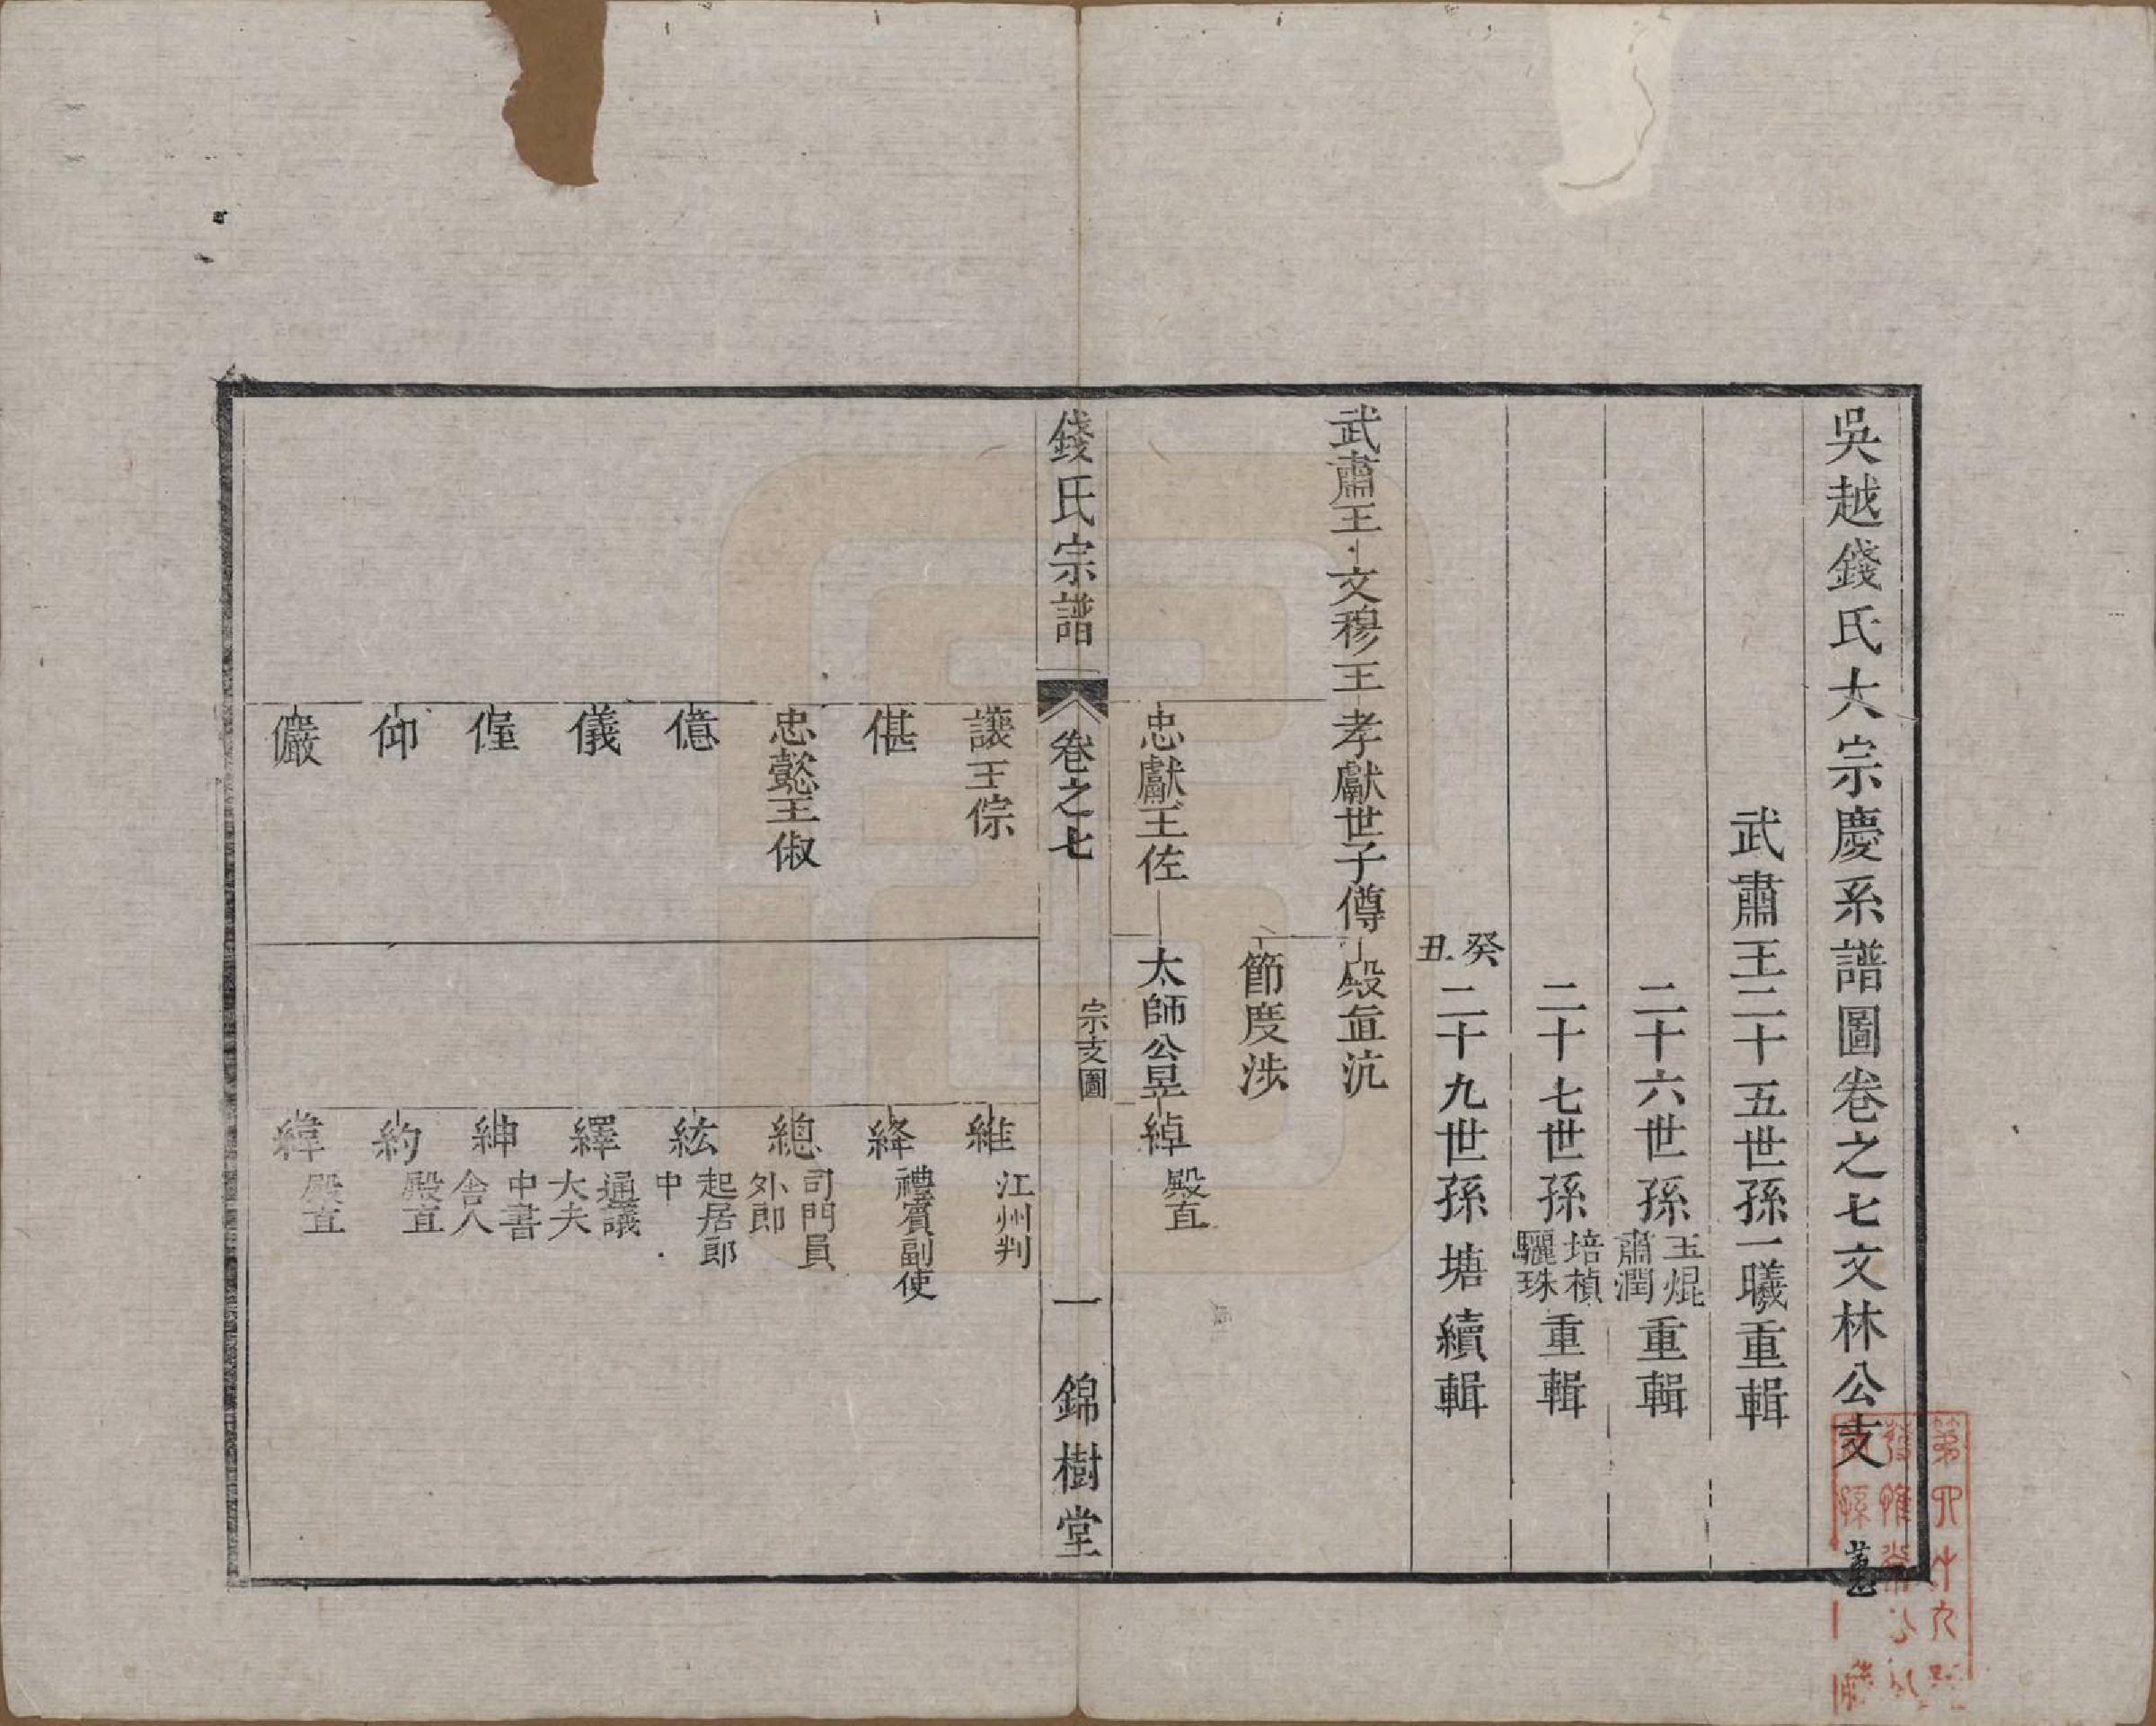 吳越錢氏大宗慶系譜圖卷之七文林公支
武肅王二十五世孫一曦重輯
二十六世孫玉焜肅潤重輯
二十七世孫培楨驪珠重輯
癸丑二十九世孫塘續輯
武肅王 文穆王 孝獻世子傳 殿直沆
節度涉
忠獻王佐 太師公昱 綽 殿直
錢氏宗譜 卷之七 宗支圖 一 錦樹堂
讓王倧 維 江州判
偡 絳 禮賓副使
忠懿王俶 總 司門員外郎
億 紘 起居郎中
儀 繹 通議大夫
偓 紳 中書舍人
仰 約 殿直
儼 緯 殿直